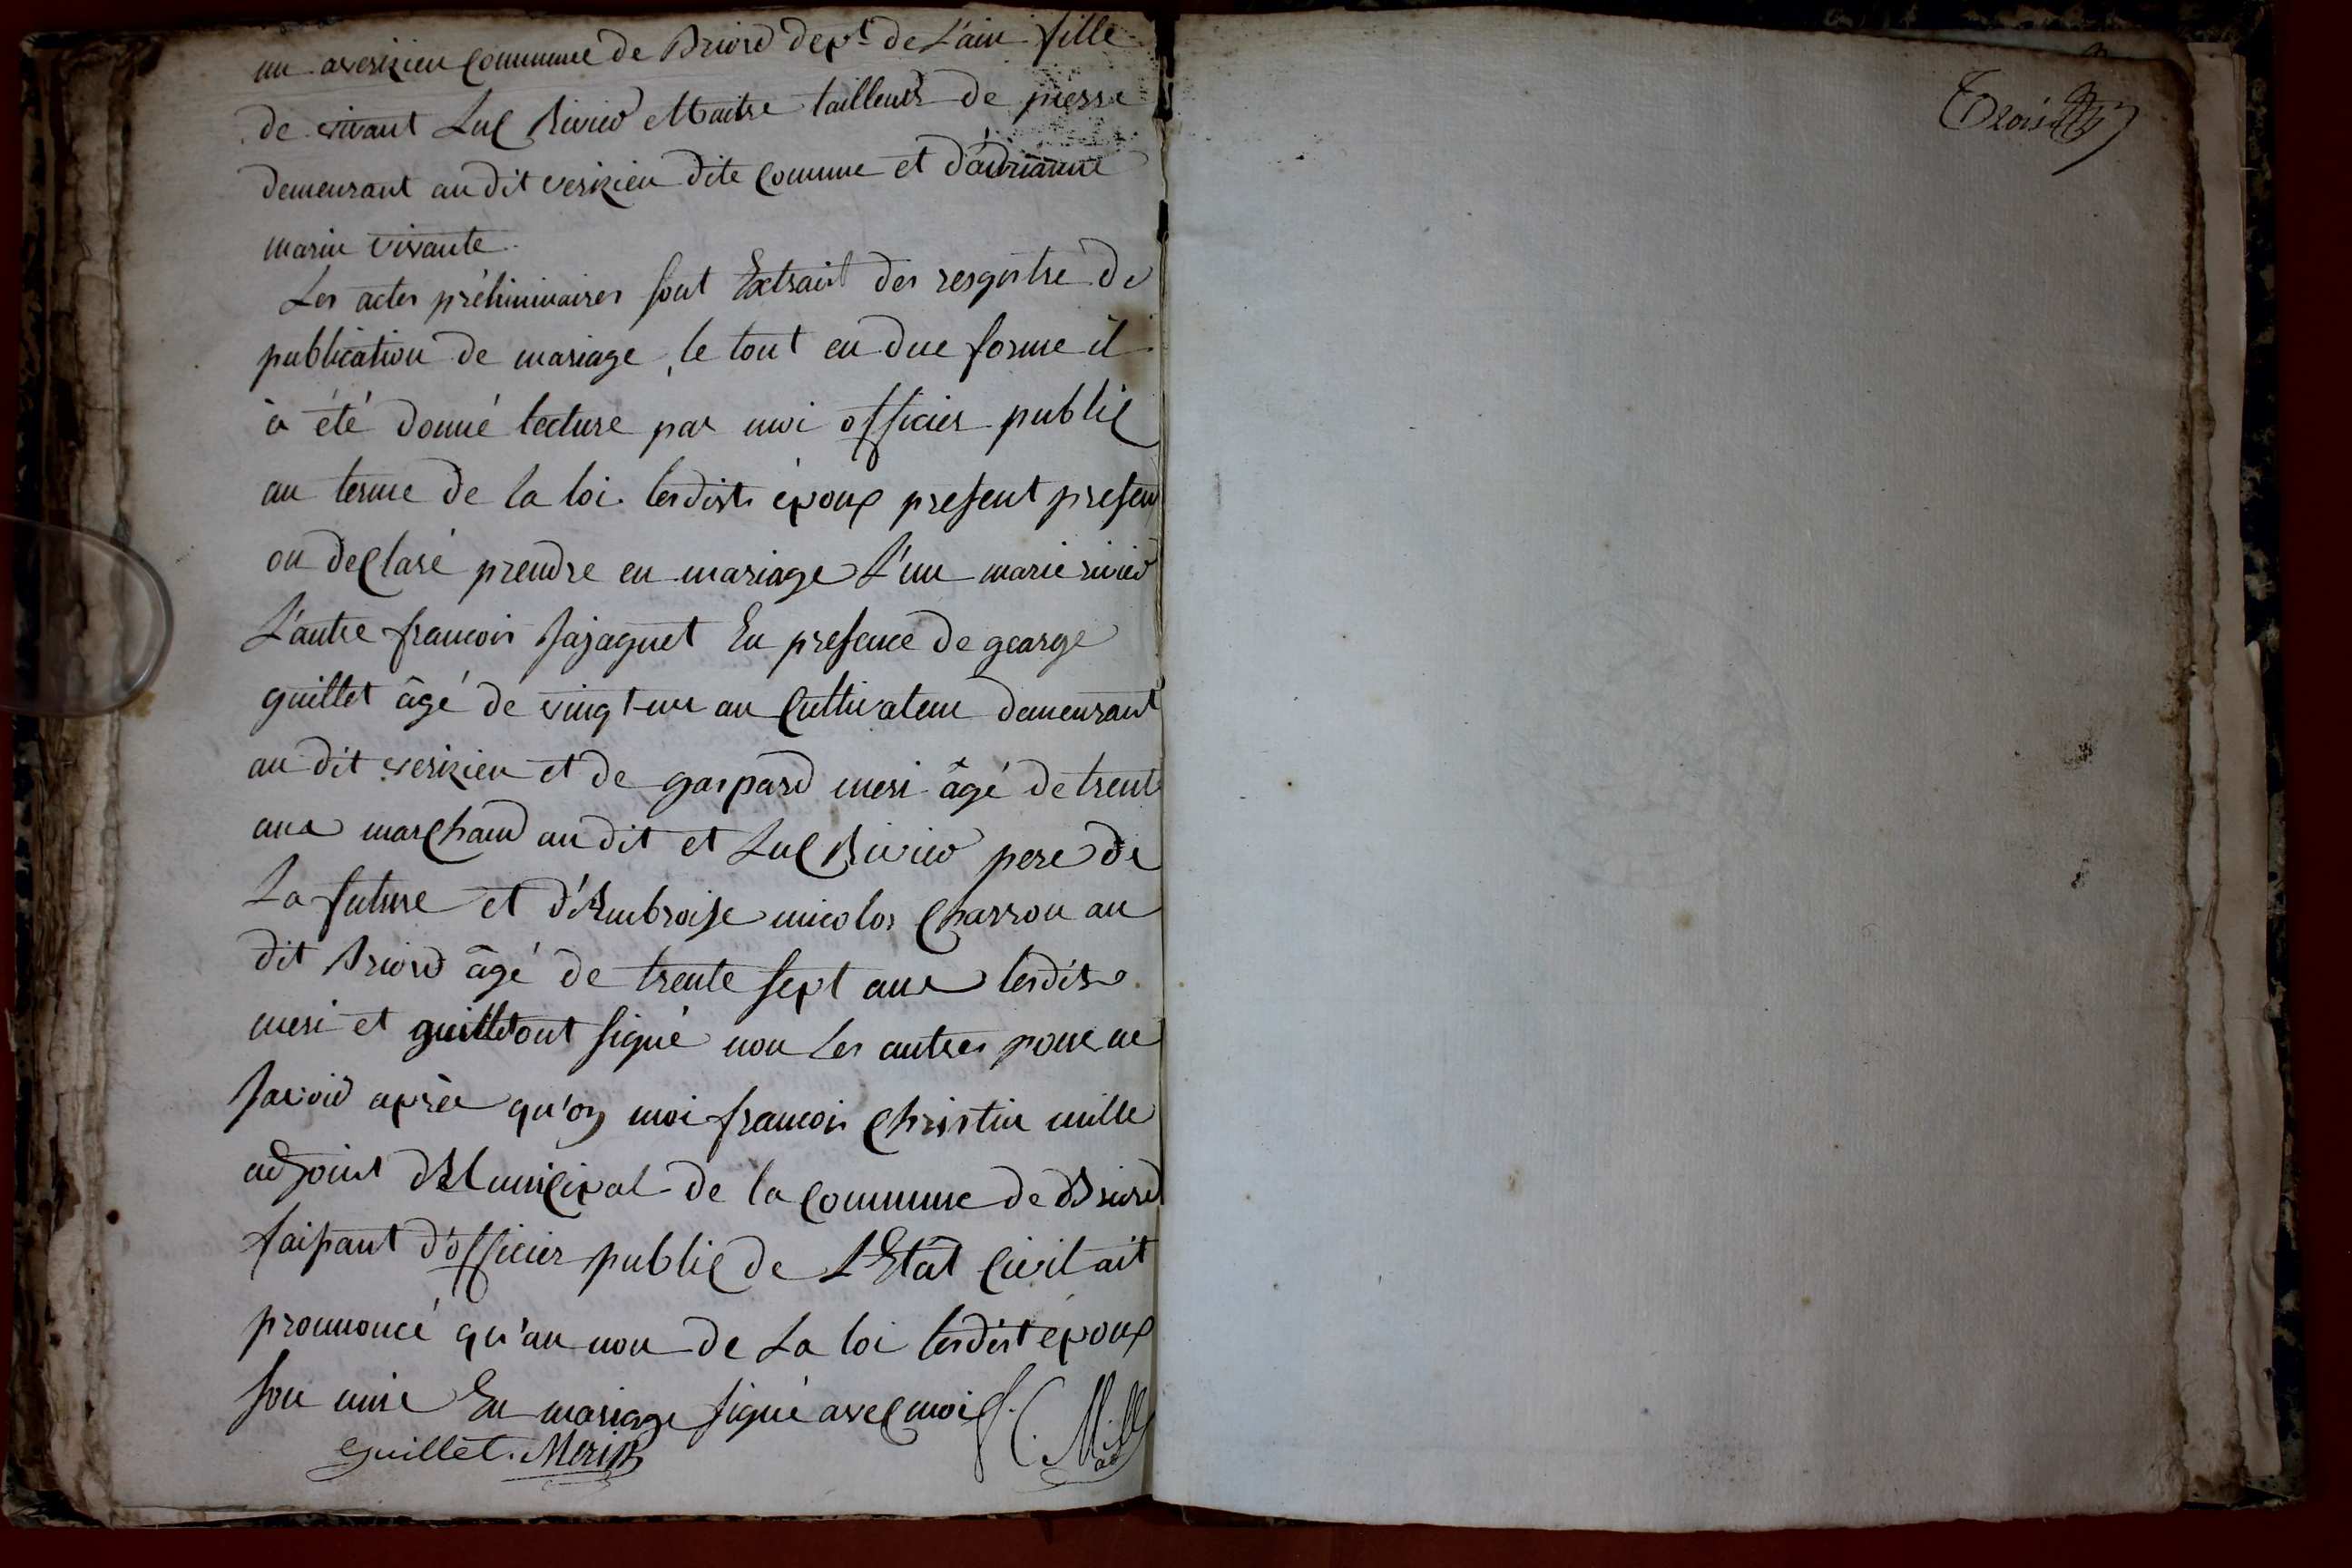 au averizieu Commune de Briord depᵗ de L'ain fille
de vivant Luc Rivier Maitre tailleur de pierre
demeurant au dit verizieu dite Commune et d'adrianne
marin vivante.
Les actes préliminaires sont Extrait des resgistre de
publication de mariage, le tout en due forme il
à été donné lecture par moi officier public
au terme de la loi. lesdists époux present presen
on declaré prendre en mariage L'un marie rivier
L'autre francois Jajaquet En presence de gearge
guillet âgé de vingt-un an Cultivateur demeurant
au dit verizieu et de gaspard meri âgé de trente
ans marchand au dit et Luc Rivier pere de
La future et d'Ambroise micolos Charron au
dit Briord âgé de trente sept ans lesdits
meri et guillet ont signé non Les autres pour ne
savoir après qu'oy moi francois Christin mille
adjoint Municipal de la Commune de Briord
faisant d'officier public de L'Etat Civil ait
pronnoncé qu'au non de La loi lesdist époux
son unie En mariage signé avec moi F. C. Mille
guillet. Merin ad
Trois